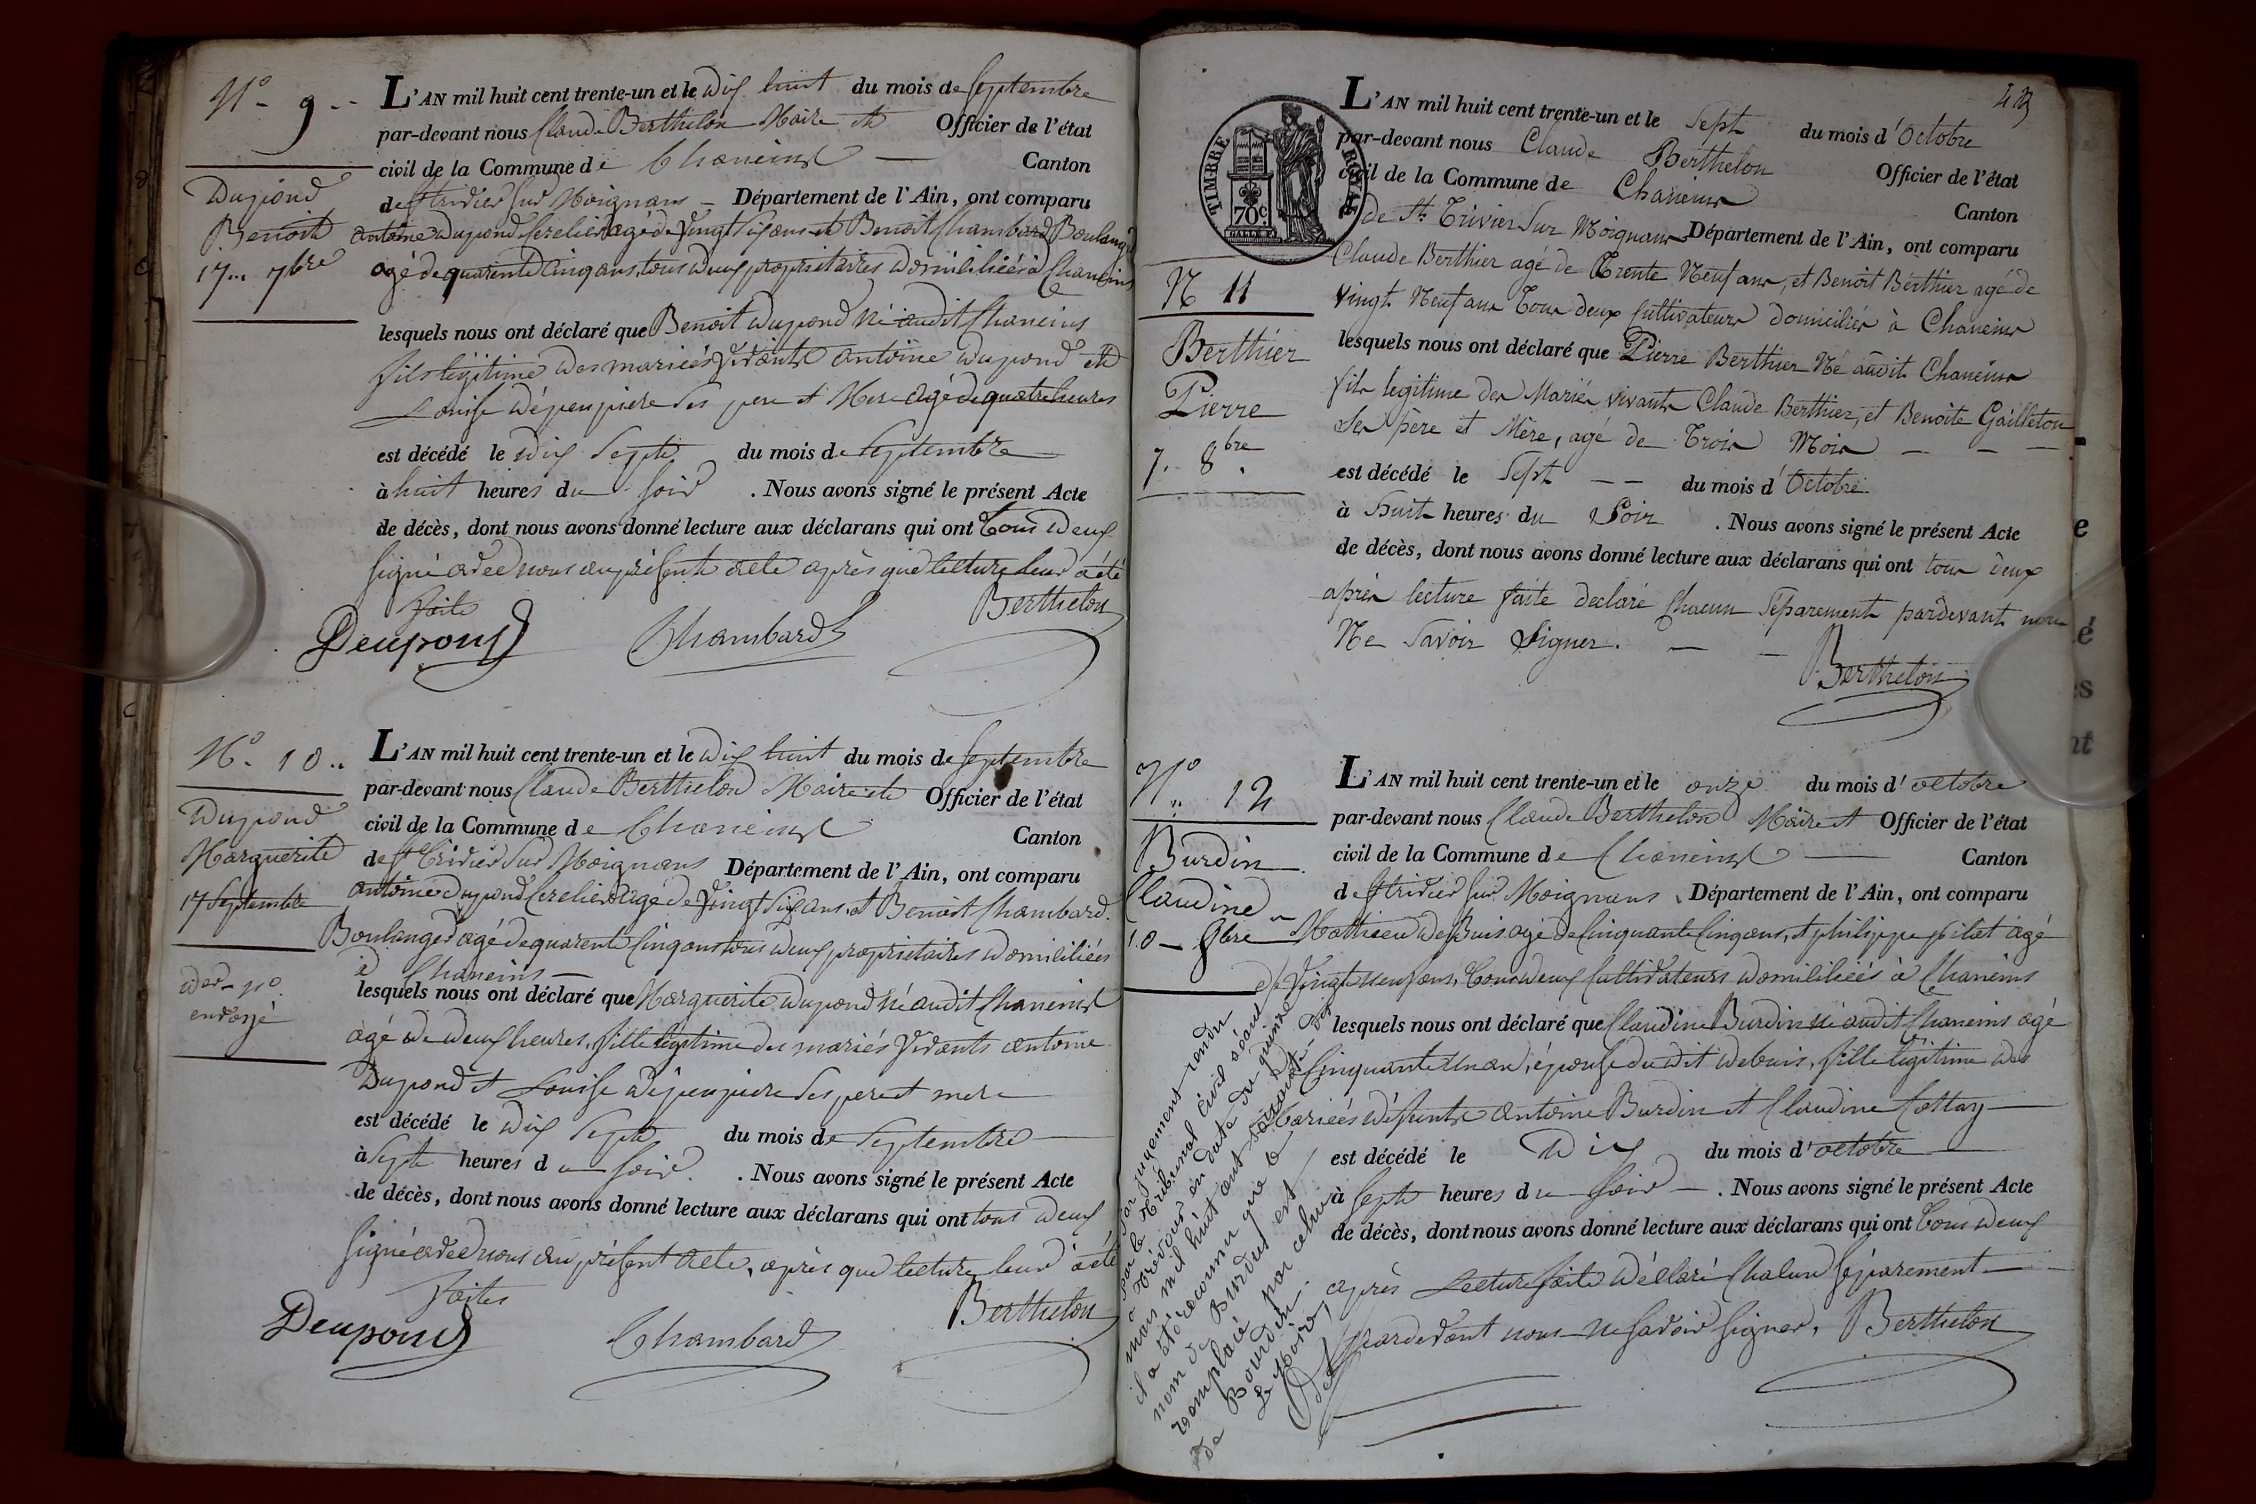 N.° 9
Dupond
Benoit
17.. 7bre
L'AN mil huit cent trente-un et le dix huit du mois de septembre
par-devant nous Claude Berthelon Maire et Officier de l'état
civil de la Commune de Chaneins Canton
de St trivier sur Moignans Département de l'Ain, ont comparu
antoine Dupond agé de vingt six ans et Benoit Chambard Boulanger
agé de quarente cinq ans, tous deux proprietaires domiciliéés à Chaneins
lesquels nous ont déclaré que Benoit Dupond né audit Chaneins
fils légitime des mariées vivants antoine Dupond et
Louise Dépeupiere ses pere et Mere agé de quatre heures
est décédé le dix sept du mois de septembre
à huit heures du soir . Nous avons signé le présent Acte
de décès, dont nous avons donné lecture aux déclarans qui ont tous deux
signé avec nous au présente acte après que lecture leur a été
faite
Deupond Chambard Berthelon
N.° 10..
Dupond
Marguerite
17 Septembre
L'AN mil huit cent trente-un et le dix huit du mois de septembre
par-devant nous Claude Berthelon Maire et Officier de l'état
civil de la Commune de Chaneins Canton
de St Trivier sur Moignans Département de l'Ain, ont comparu
antoine Dupond agé de vingt six ans, et Benoit Chambard
Boulanger agé de quarente cinq ans tous deux proprietaires domiciliées
à Chaneins
lesquels nous ont déclaré que Marguerite Dupond né audit Chaneins
agé de deux heures, fille légitime des mariés vivants antoine
Dupond et Louise Dépeupiere ses pere et mere
est décédé le dix sept du mois de septembre
à sept heures du soir . Nous avons signé le présent Acte
de décès, dont nous avons donné lecture aux déclarans qui ont tous deux
signé avec nous au présent acte, après que lecture leur a été
faites
Deupond Chambard Berthelon
TIMBRE ROYAL
70c
N 11
Berthier
Pierre
7. 8bre
L'AN mil huit cent trente-un et le sept du mois d'Octobre
par-devant nous Claude Berthelon Officier de l'état
civil de la Commune de Chaneins Canton
de St. Trivier Sur Moignans Département de l'Ain, ont comparu
Claude Berthier agé de Trente Neuf ans, et Benoit Berthier agé de
Vingt Neuf ans Tous deux Cultivateurs domiciliés à Chaneins
lesquels nous ont déclaré que Pierre Berthier Né audit Chaneins
fils legitime des Mariés vivants Claude Berthier, et Benoite Gailleton
Ses père et Mère, agé de Trois Mois
est décédé le sept du mois d'Octobre
à huit heures du Soir . Nous avons signé le présent Acte
de décès, dont nous avons donné lecture aux déclarans qui ont tous deux
après lecture faite declaré Chacun Séparement pardevant nous
Ne Savoir Signer.
Berthelon
N.° 12
Burdin
Claudine
10 - 8bre
L'AN mil huit cent trente-un et le onze du mois d'octobre
par-devant nous Claude Berthelon Maire et Officier de l'état
civil de la Commune de Chaneins Canton
de St trivier sur Moignans Département de l'Ain, ont comparu
Mathieu deBuis agé de Cinquante Cinq ans, et philippe agé
de Vingt neuf ans, Tous deux Cultivateurs domiciliéés à Chaneins
lesquels nous ont déclaré que Claudine Burdin né audit Chaneins agé
Cinquante un an, épouse dudit debuis, fille légitime des
Mariées défunts antoine Burdin et Claudine Cottay
est décédé le Dix du mois d'octobre
à sept heures du soir . Nous avons signé le présent Acte
de décès, dont nous avons donné lecture aux déclarans qui ont tous deux
après Lecture faite déclaré Chacun séparement
pardevant nous ne savoir signer. Berthelon
Par jugement rendu
par le Tribunal Civil séant
à Trévoux en date du quinze
mars mil huit cent soixante-dix
il a été reconnu que le
nom de Burdin est
remplacé par celui
de Bourdin.
Le Maire